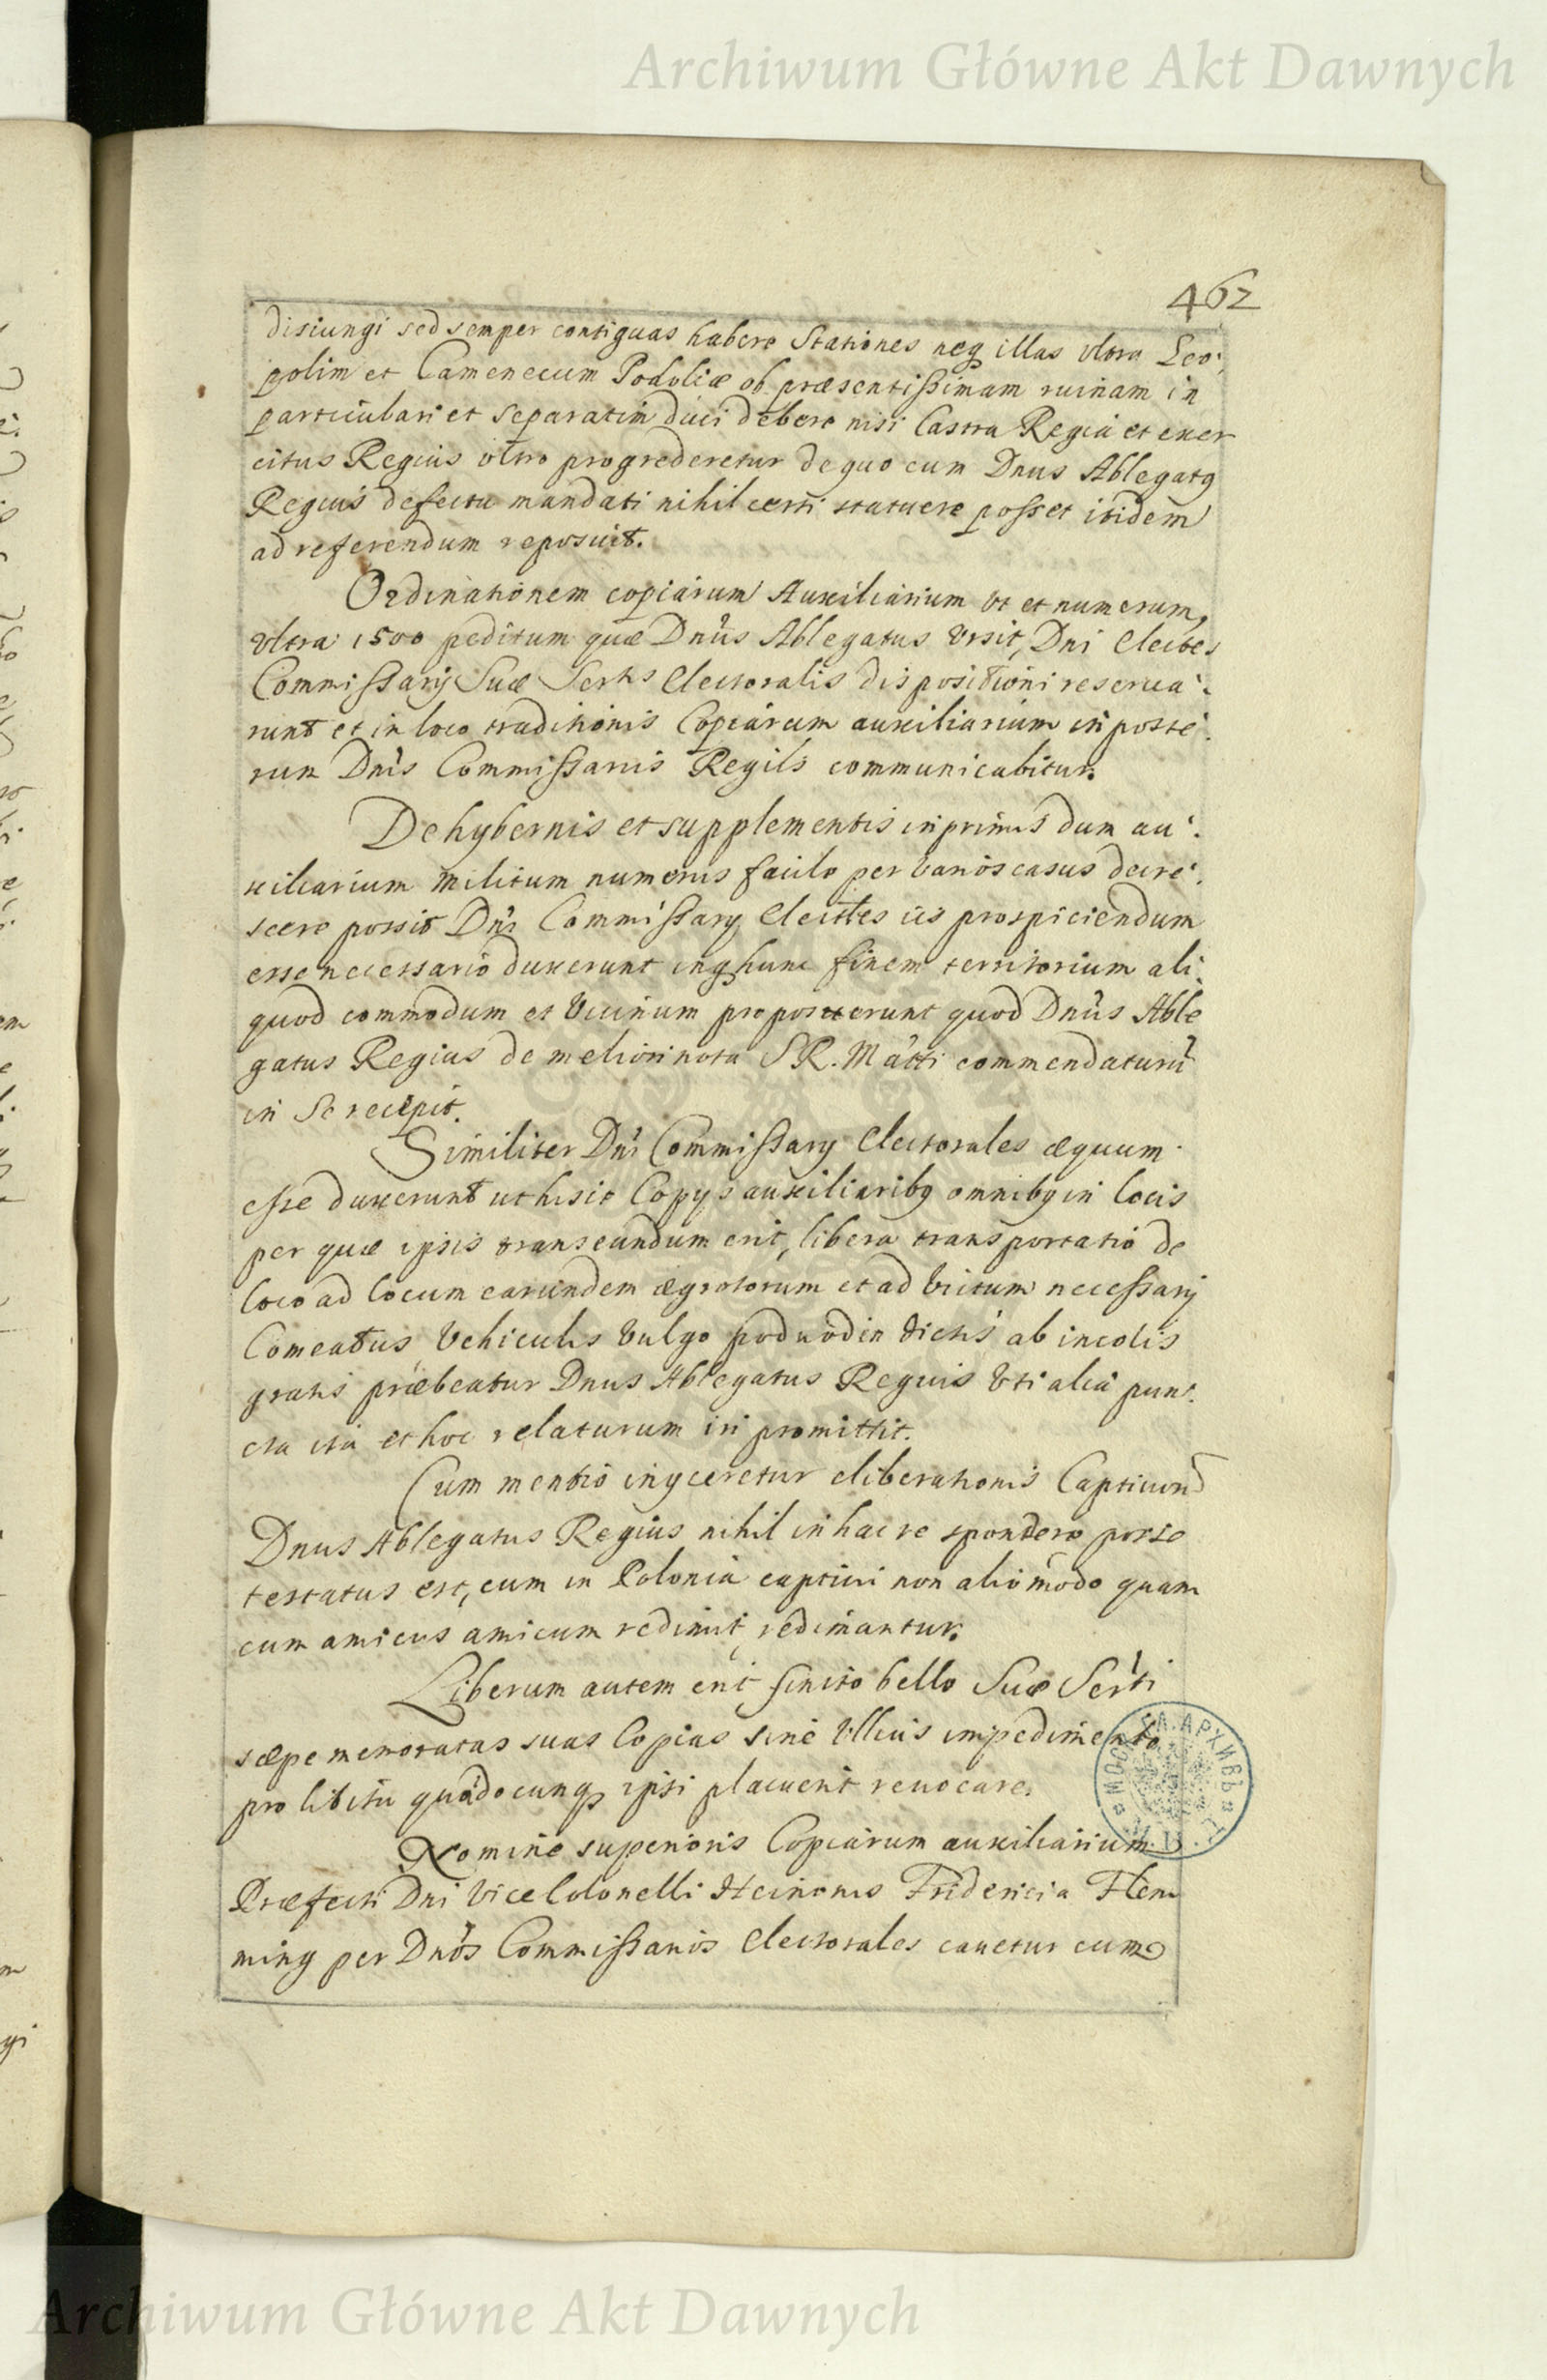 Archiwum Główne Akt Dawnych
462
disiungi sed semper contiguas habere Stationes neq illas vltra Leo
polim et Camenecum Podoliæ ob præsentissimam ruinam in
particulari et separatim duci debere nisi Castra Regia et exer
citus Regius vltro progrederetur de quo cum Dnus Ablegatq
Regius defectu mandati nihil certi statuere posset itidem
ad referendum reposuit.
Ordinationem copiarum Auxiliarium vt et numerum,
vltra 1500 peditum quæ Dnus Ablegatus Vrsit, Dni Electes
Commissarij Suæ Sertis Electoralis dispositioni reserua
runt et in loco traditionis Copiarum auxiliarium in poste
rum Dnis Commissariis Regiis communicabitur.
De hybernis et supplementis inprimis dum au
xiliarium militum numerus facile per varios casus decre
scere possit Dni Commissary Electles iis prospiciendum
esse necessario duxerunt inq hunc finem territorium ali
quod commodum et Vicinum proposuerunt quod Dnus Able
gatus Regius de meliori nota S R. Matti commendaturu
in Se recepit.
Similiter Dni Commissary Electorales æquum
esse duxerunt ut hisce Copijs auxiliaribq omnibq in locis
per quæ ipsis transeundum erit, libera transportatio de
loco ad locum earundem ægrotorum et ad Victum necessarij
Comeatus Vehiculis Vulgo podwodin dictis ab incolis
gratis præbeatur Dnus Ablegatus Regius Vti alia pun
cta ita et hoc relaturum iri promittit.
Cum mentio inyceretur eliberationis Captivoru
Dnus Ablegatus Regius nihil in hac re spondere posse
testatus est, cum in Polonia captivi non alio modo quam
cum amicus amicum redimit, redimantur.
Liberum autem erit finito bello Suæ Serti
sæpe memoratas suas Copias sine Vllius impedimento
pro libitu quadocunq ipsi placuerit reuocare.
Nomine superioris Copiarum auxiliarium
Præfecti Dni Vice Colonelli Heinonis Friderici a Flem
ming per Dnos Commissarios Electorales cauetur cum
Archiwum Główne Akt Dawnych